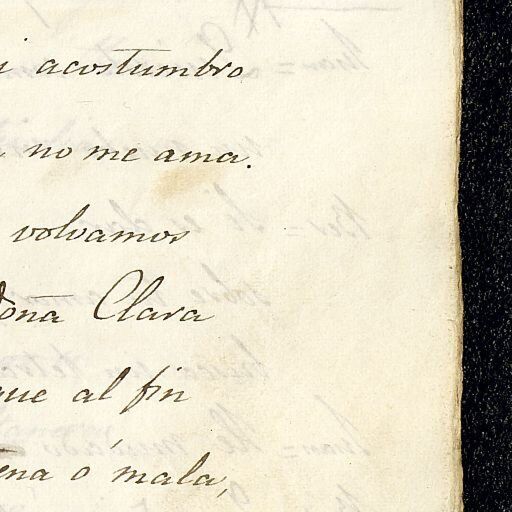 acostumbro
no me ama.
volvamos
Doña Clara
que al fin
ena ó mala,